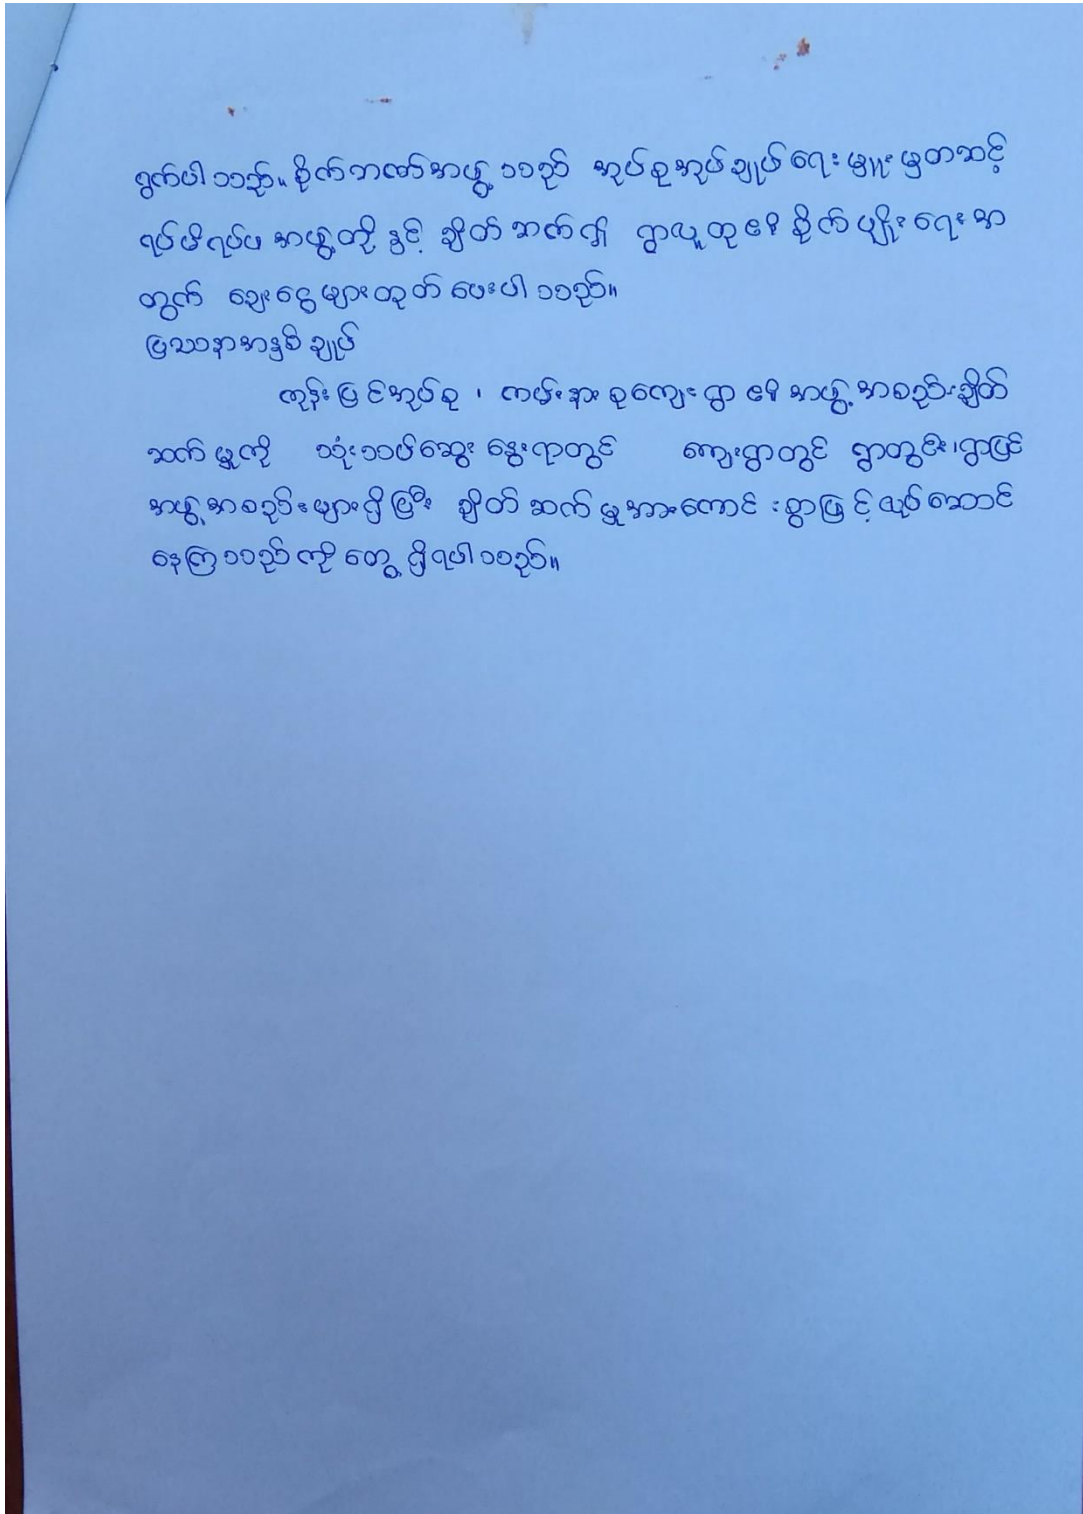 ရွက်ပါသည်။ စိုက်ဘဏ်အဖွဲ့သည် အုပ်စုအုပ်ချုပ်ရေးမှူးမှတဆင့်
ရပ်မိရပ်ဖအဖွဲ့တို့နှင့် ချိတ်ဆက်၍ ရွာလူထု၏စိုက်ပျိုးရေးအ
တွက် ချေးငွေများထုတ်ပေးပါသည်။
ပြဿနာအနှစ်ချုပ်
ကုန်းမြင်အုပ်စု ၊ ကမ်းနားစုကျေးရွာ၏အဖွဲ့အစည်းချိတ်
ဆက်မှုကို သုံးသပ်ဆွေးနွေးရာတွင် ကျေးရွာတွင် ရွာတွင်း၊ရွာပြင်
အဖွဲ့အစည်းများရှိပြီး ချိတ်ဆက်မှုအားကောင်းစွာဖြင့်လုပ်ဆောင်
နေကြသည်ကိုတွေ့ရှိရပါသည်။